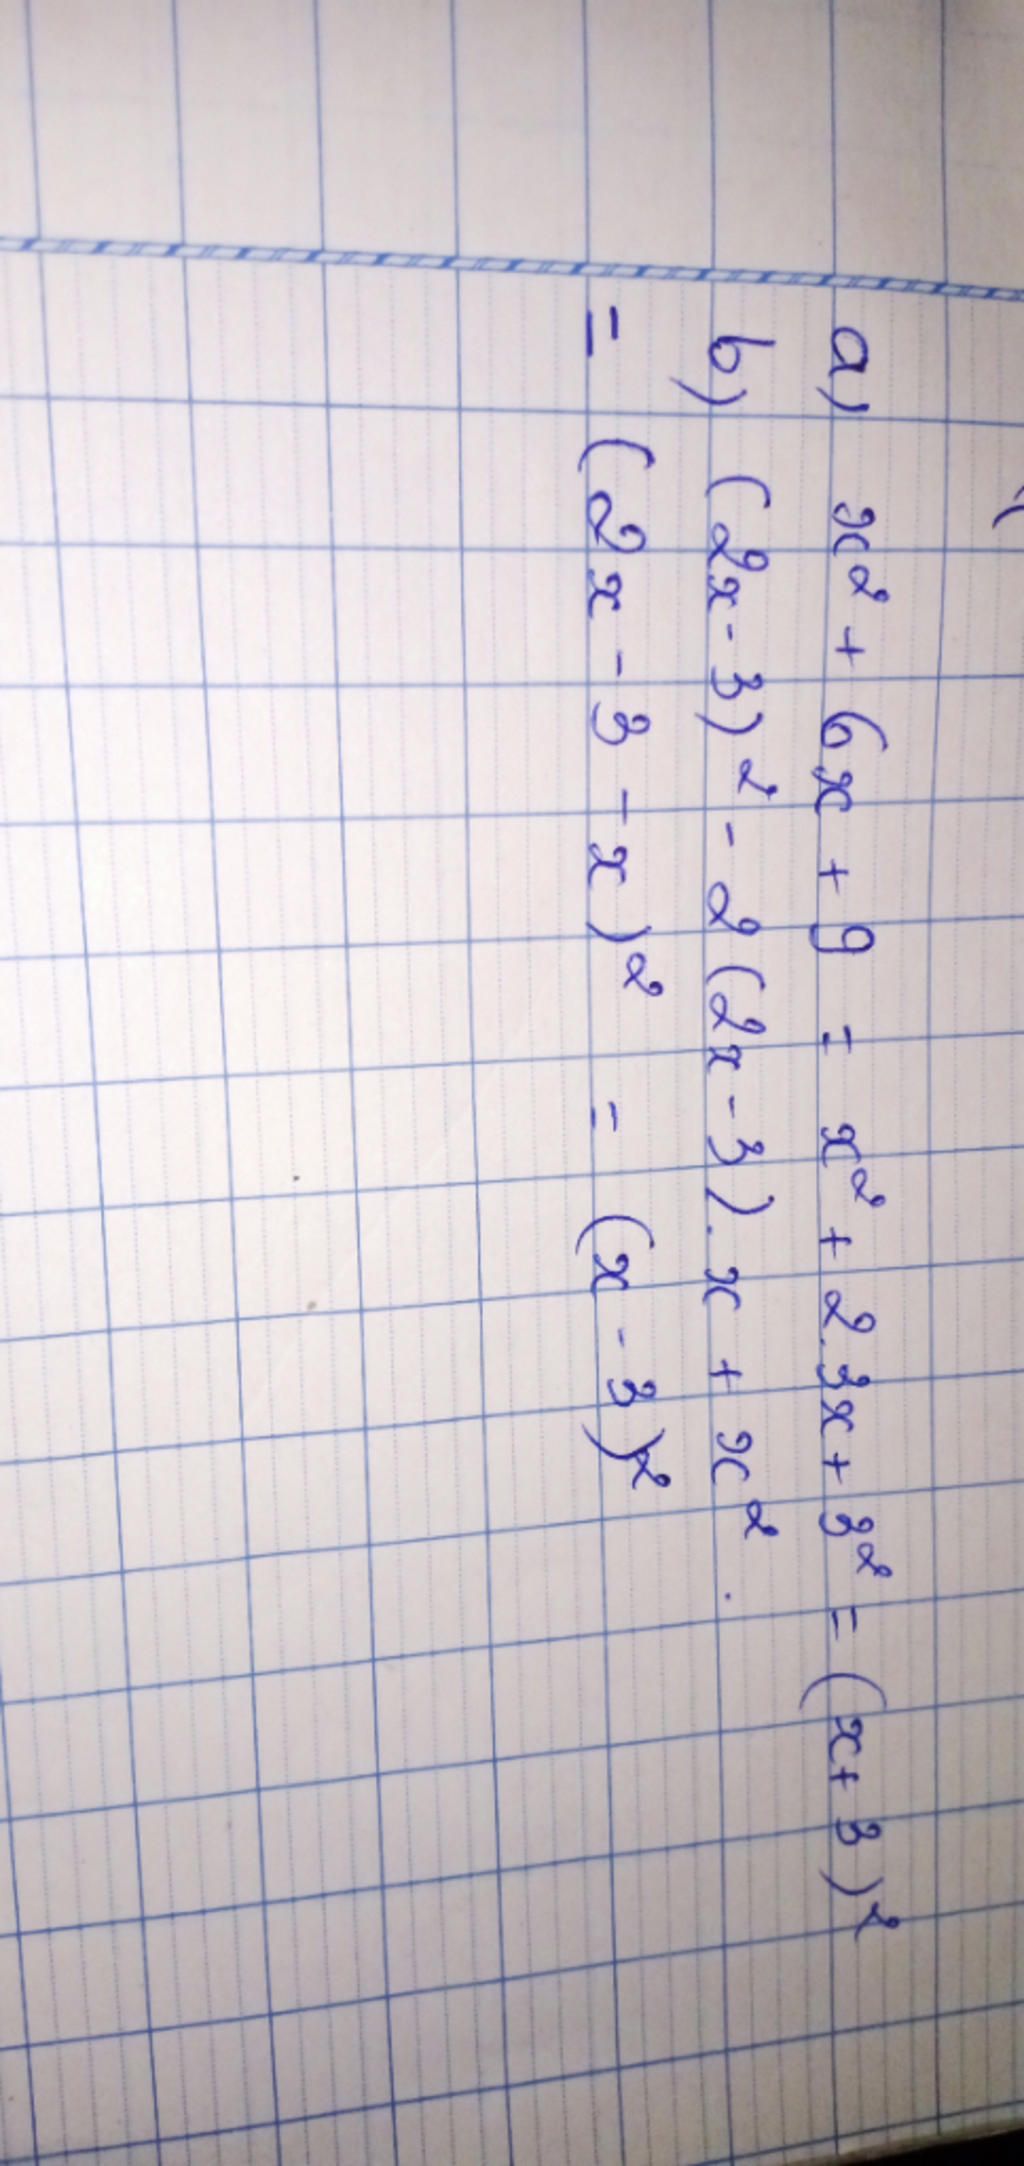 a) x² + 6x + 9 = x² + 2.3x + 3² = (x + 3)²
b) (2x - 3)² - 2(2x - 3).x + x².
= (2x - 3 - x)² = (x - 3)²